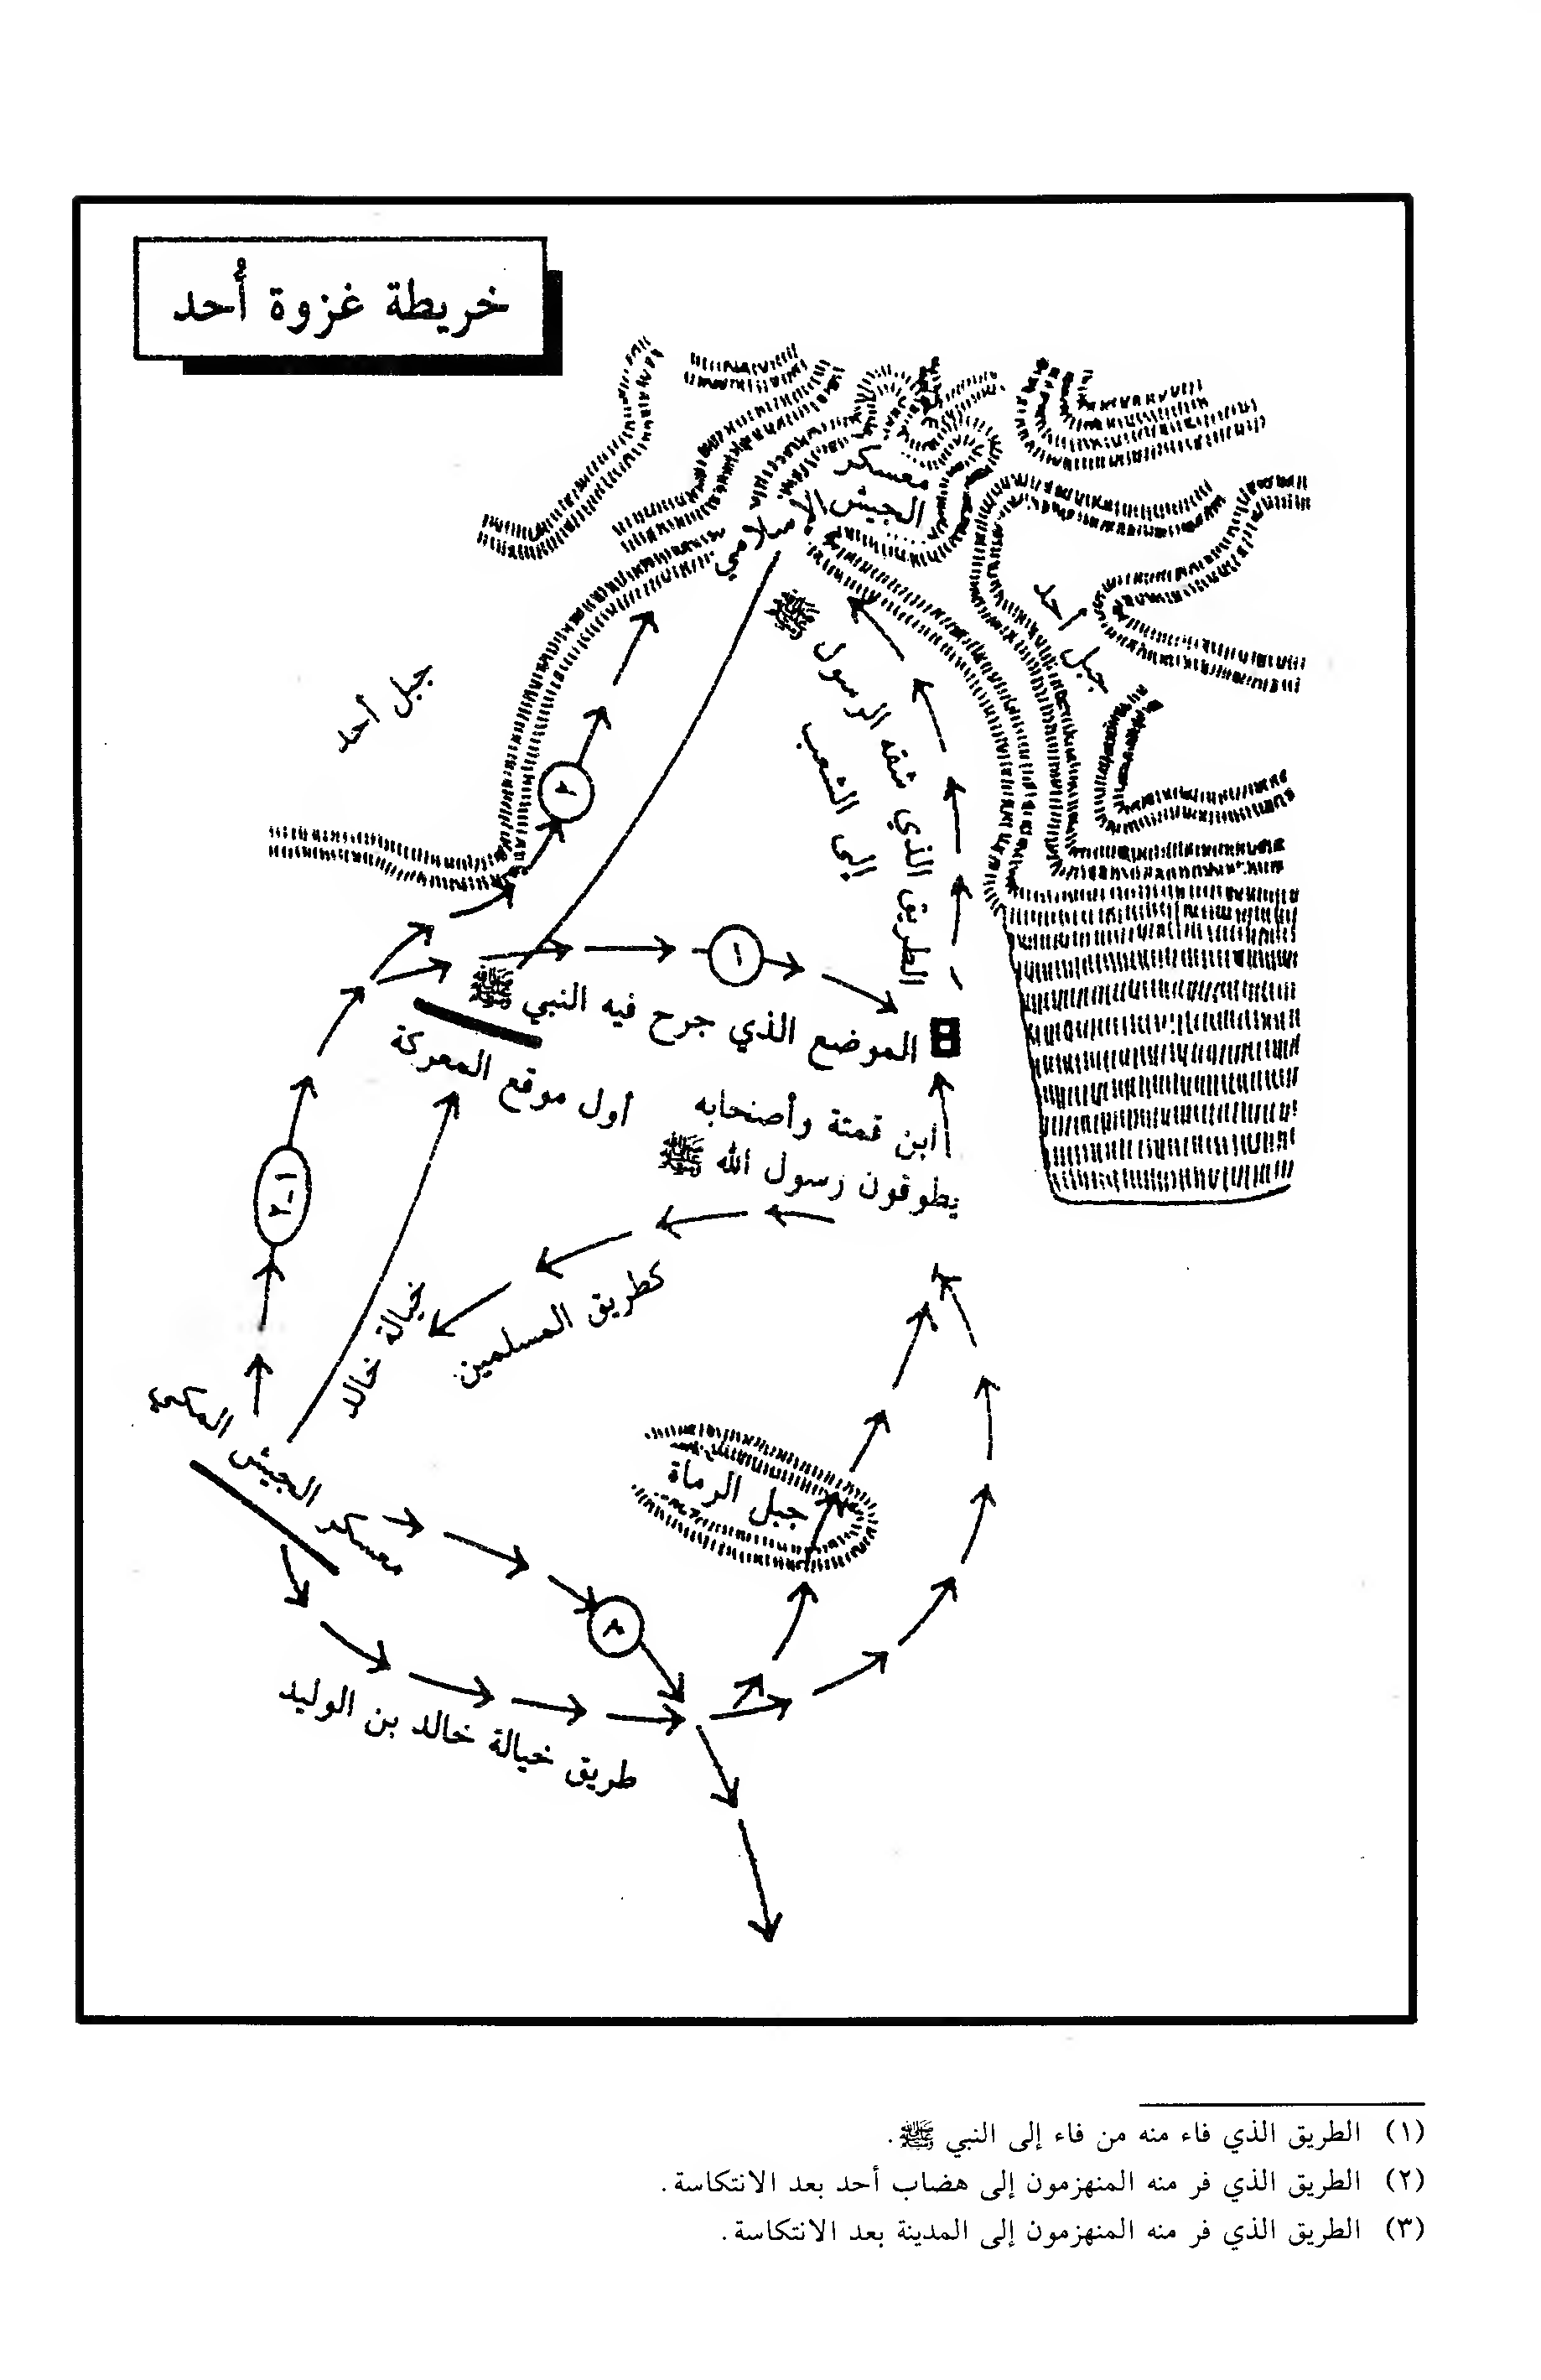 خريطة غزوة أُحد
معسكر
الجيش الإسلامي
جبل أحد
جبل أحد
الطريق الذي شقه الرسول ﷺ
إلى الشعب
٢
١
الموضع الذي جرح فيه النبي ﷺ
أول موقع المعركة
ابن قمتة وأصنحابه
يطوقون رسول الله ﷺ
١-٢
كطريق المسلمين
خيالة خالد
معسكر الجيش المكي
جبل الرماة
طريق خيالة خالد بن الوليد
(١) الطريق الذي فاء منه من فاء إلى النبي ﷺ.
(٢) الطريق الذي فر منه المنهزمون إلى هضاب أحد بعد الانتكاسة.
(٣) الطريق الذي فر منه المنهزمون إلى المدينة بعد الانتكاسة.